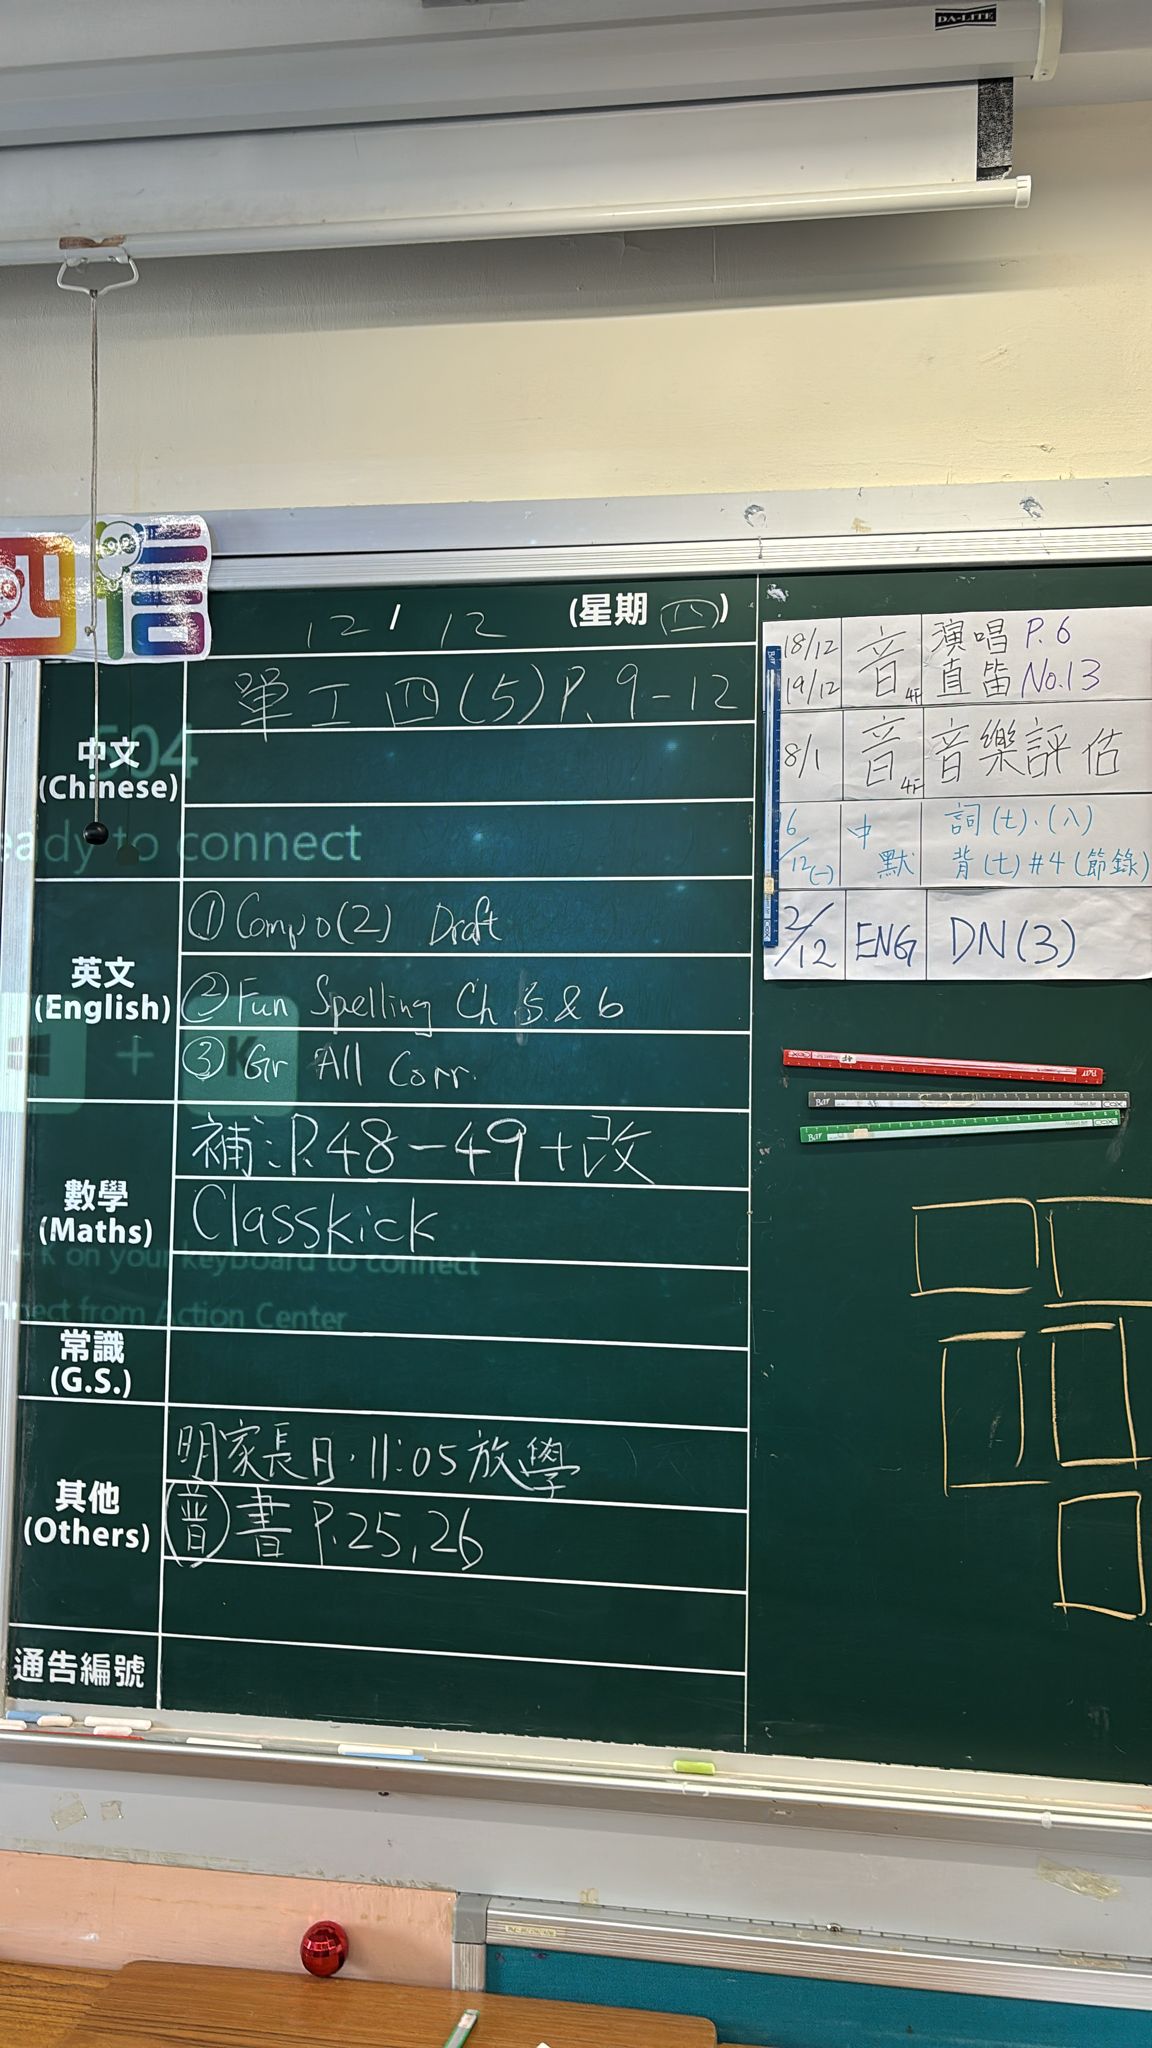 DA-LITE
12/12 (星期四)
單工四(5)P.9-12
中文
(Chinese)
504
eady to connect
英文
(English)
①Compo(2) Draft
②Fun Spelling Ch 5 & 6
③Gr All Corr.
+ K
數學
(Maths)
補:P.48-49+改
Classkick
K on your keyboard to connect
nnect from Action Center
常識
(G.S.)
其他
(Others)
明家長日·11:05放學
普 書 P.25,26
通告編號
18/12 音 演唱P.6
19/12 直笛No.13
8/1 音 音樂評估
16/12(一) 中默 詞(七)、(八)
背(七)#4(節錄)
2/12 ENG DN(3)
Bar
COX
Bar
COX
Bar
COX